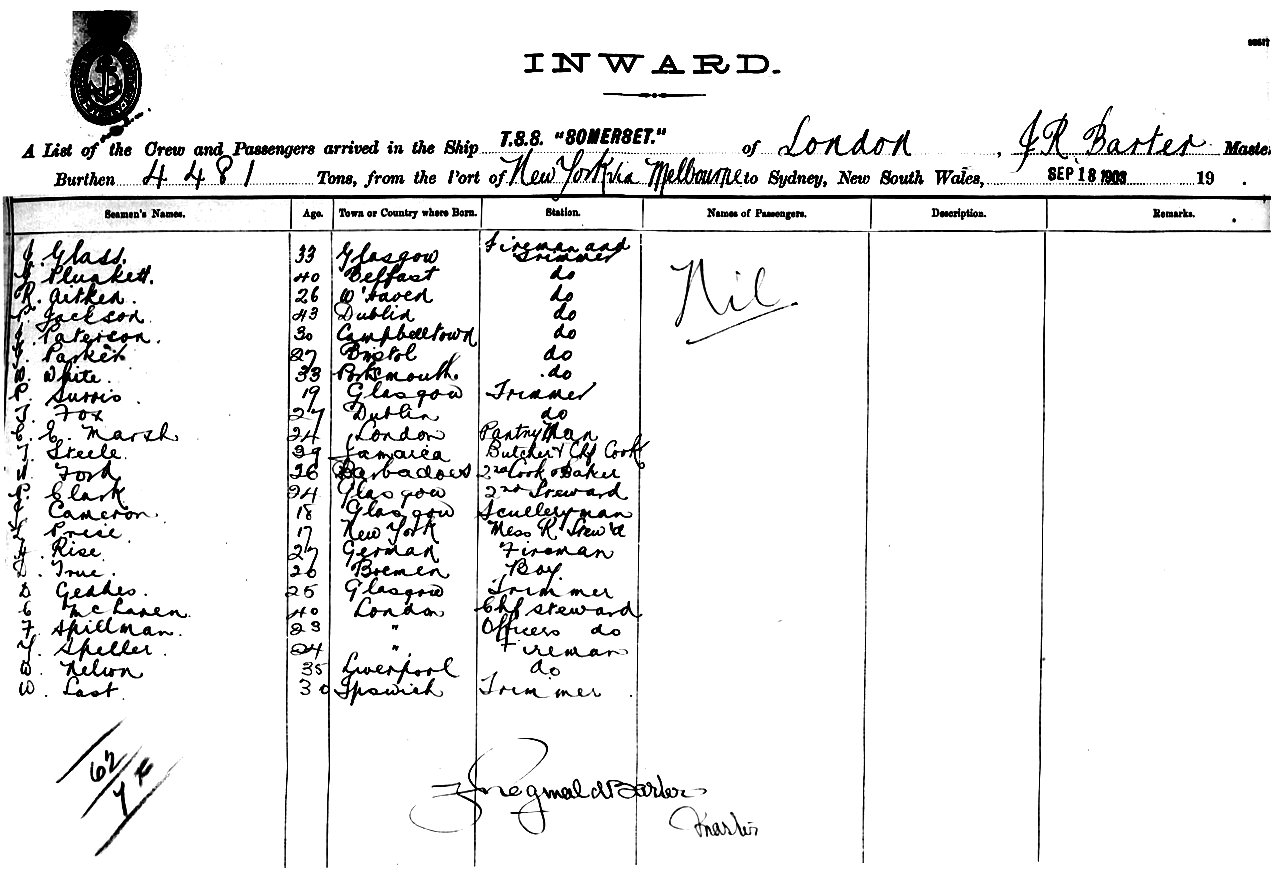 INWARD.
A List of the Crew and Passengers arrived in the Ship T.S.S. "SOMERSET." of London, J.R. Barter Master
Burthen 4481 Tons, from the Port of New York via Melbourne to Sydney, New South Wales, SEP 18 1903 19 .
Seamen's Names. Age. Town or Country where Born. Station. Names of Passengers. Description. Remarks.
J. Glass. 33 Glasgow Fireman and Trimmer Nil.
Plunkett. 40 Belfast do
R. Aitken. 26 do
Jackson. 43 Dublin do
Paterson. 30 Campbelltown do
Parker 27 Bristol do
White. 33 Portsmouth. do
19 Glasgow Trimmer
Fox 27 Dublin do
E. Marsh 24 London Pantry Man
Steele. 29 Jamaica Butcher & Chf Cook
Ford 26 Barbadoes 2nd Cook & Baker
Clark 24 Glasgow 2nd Steward
Cameron. 18 Glasgow Sculleryman
Price. 17 New York Mess R. Stew'd
Rise. 27 German Fireman
True. 26 Bremen Boy.
D Geddes. 25 Glasgow Trimmer
C 40 London Chf Steward
F. Spillman. 23 " Officers do
Speller 24 " Fireman
Nelson 35 Liverpool do
W. Last. 30 Ipswich Trimmer
62
J Reginald Barter
Master